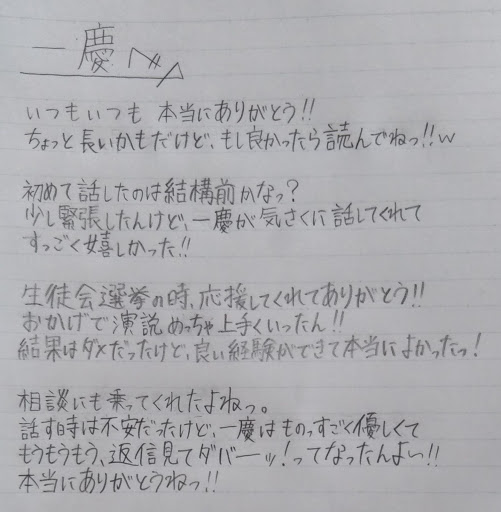 一慶へ
いつもいつも 本当にありがとう!!
ちょっと長いかもだけど、もし良かったら読んでねっ!!w
初めて話したのは結構前かなっ?
少し緊張したんけど、一慶が気さくに話してくれて
すっごく嬉しかった!!
生徒会選挙の時、応援してくれてありがとう!!
おかげで演説めっちゃ上手くいったん!!
結果はダメだったけど、良い経験ができて本当によかったっ!
相談にも乗ってくれたよねっ。
話す時は不安だったけど、一慶はものっすごく優しくて
もうもうもう、返信見てダバーッ!ってなったんよー!!
本当にありがとうねっ!!